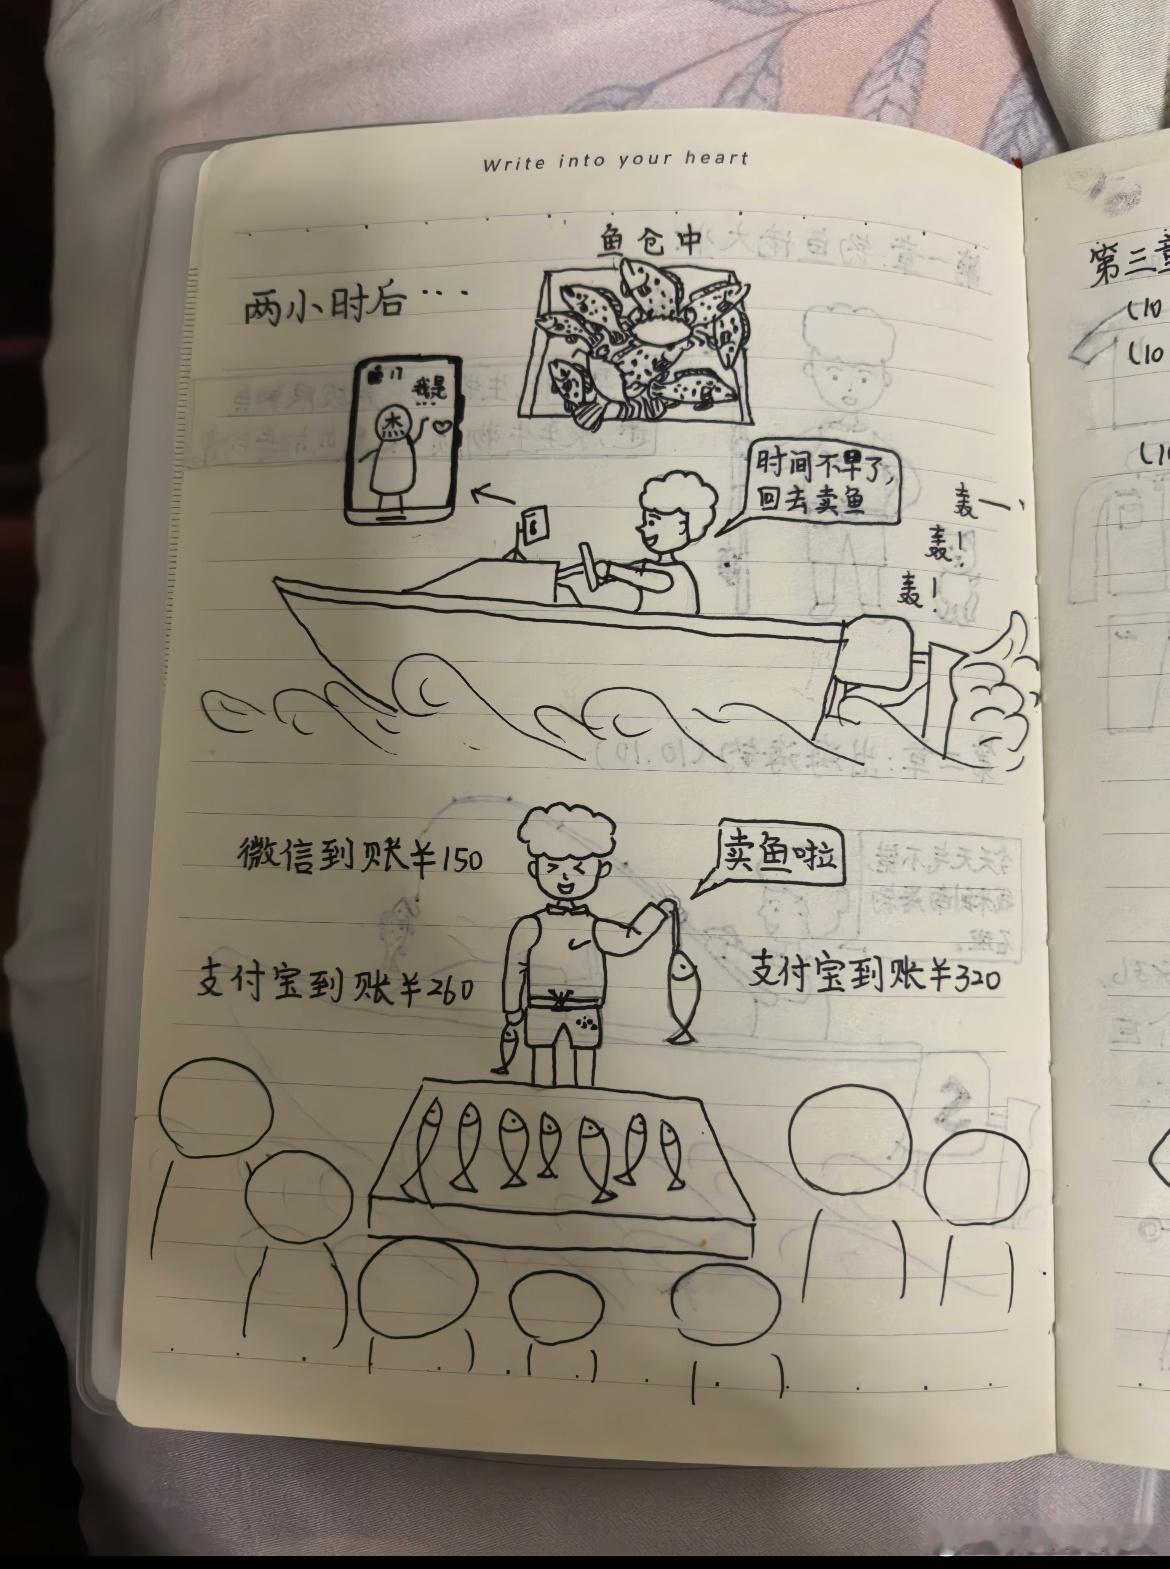 Write into your heart
鱼仓中
两小时后···
我是
杰
时间不早了,
回去卖鱼
轰一
轰!
轰!
微信到账¥150
卖鱼啦
支付宝到账¥260
支付宝到账¥320
第三章
(10
(10
(10